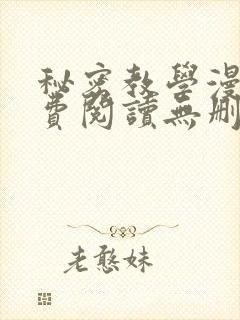 秘密教學漫
費閱讀無刪
老憨妹